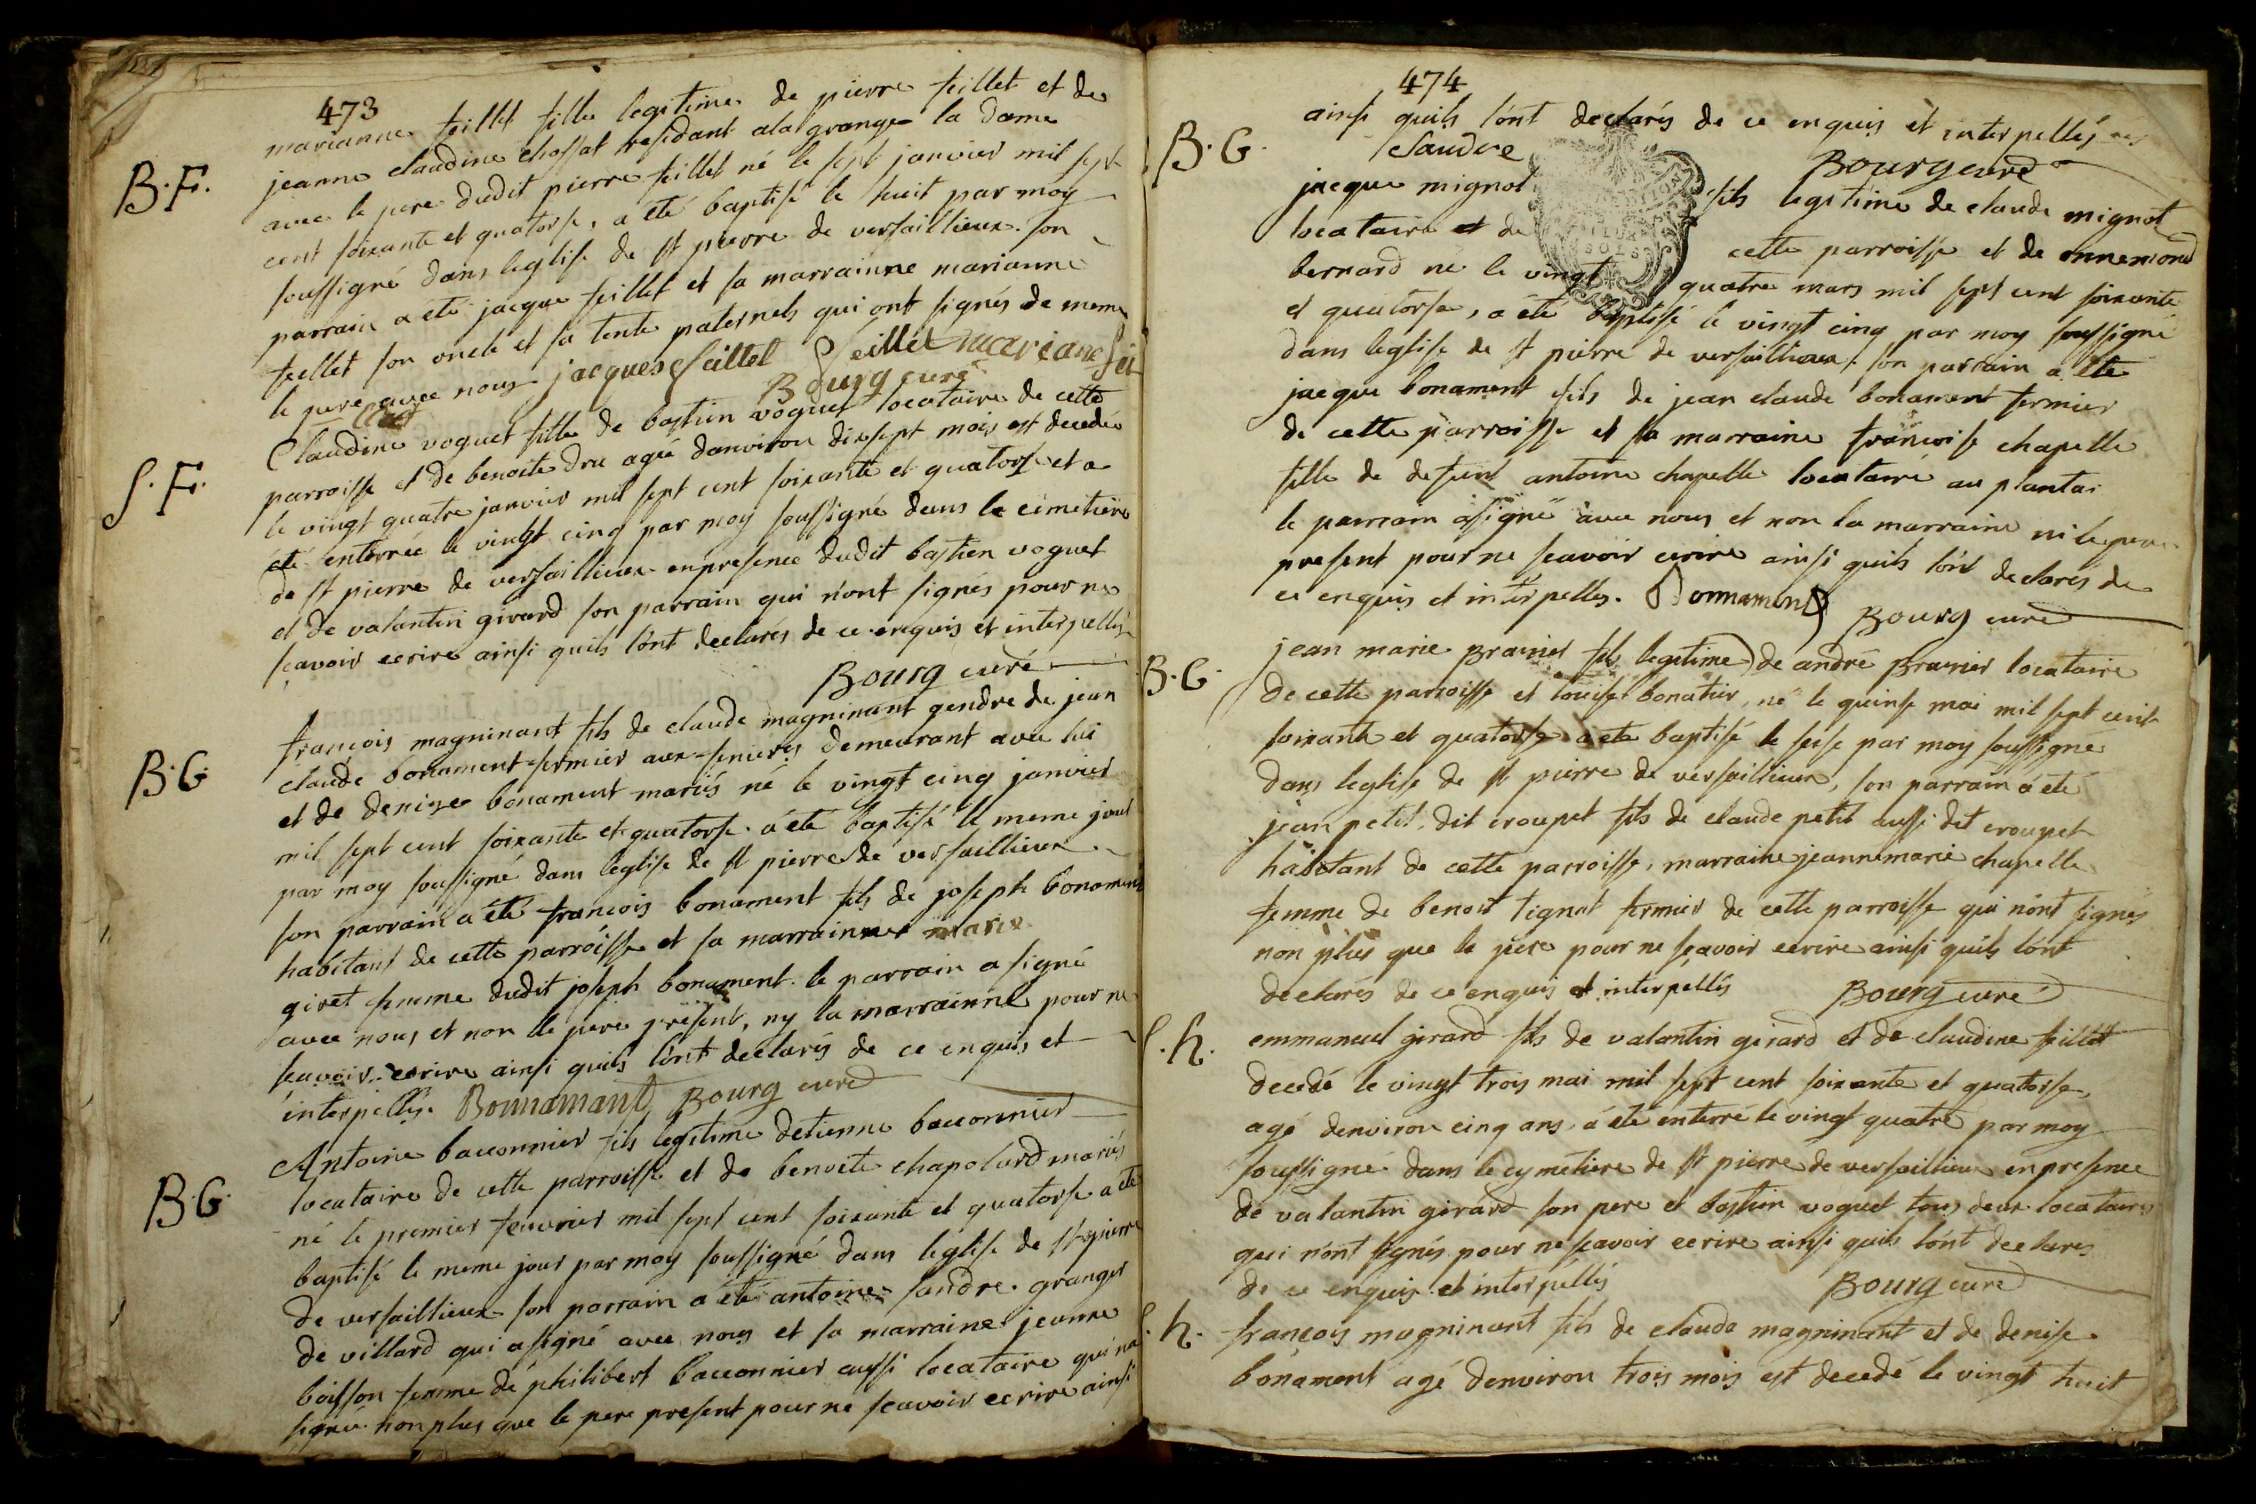 473
B.F.
marianne feillet fille legitime de pierre feillet et de
jeanne claudine chossat residant a la grange la dame
avec le pere dudit pierre feillet né le sept janvier mil sept
cent soixante et quatorse, a été baptisé le huit par moy
soussigné dans leglise de st pierre de versaillieux son
parrain a été jacque feillet et sa marrainne marianne
feillet son oncle et sa tente paternels qui ont signés de meme
le pere avec nous jacques feillet feillet mariane fei
Bourg curé
S.F.
Claudine voguet fille de bastien voguet locataire de cette
parroisse et de benoite dru agée danviron dixsept mois est decedée
le vingt quatre janvier mil sept cent soixante et quatorse et a
été enterrée le vingt cinq par moy soussigné dans le cimetiere
de st pierre de versaillieux en presence dudit bastien voguet
et de valantin girard son parrain qui n'ont signés pour ne
scavoir ecrire ainsi quils lont declarés de ce enquis et interpellés
Bourg curé
B.G
françois magninant fils de claude magninant gendre de jean
claude bonament fermier aux fenieres demeurant avec lui
et de denize bonament mariés né le vingt cinq janvier
mil sept cent soixante et quatorse a été baptisé le meme jour
par moy soussigné dans leglise de st pierre de versaillieux
son parrain a été francois bonament fils de joseph bonament
habitant de cette parroisse et sa marrainne marie
giret femme dudit joseph bonament le parrain a signé
avec nous et non le pere présent, ny la marrainne pour ne
scavoir ecrire ainsi quils lont declarés de ce enquis et
interpellés. Bonnamant Bourg curé
B.G.
Antoine baconnier fils legitime detienne baconnier
locataire de cette parroisse et de benoite chapolard mariés
né le premier feuvrier mil sept cent soixante et quatorse a été
baptisé le meme jour par moy soussigné dans léglise de st pierre
de versaillieux son parrain a été antoine fandre granger
de villard qui a signé avec nous et sa marraine jeanne
boisson femme de philibert baconnier aussi locataire qui na
signée non plus que le pere present pour ne scavoir ecrire ainsi
474
ainsi quils lont declarés de ce enquis et interpellés
Bourg curé
B.G.
jacque mignot fils legitime de claude mignot
locataire de cette parroisse et de
bernard né le vingt quatre mars mil sept cent soixante
et quatorse, a été baptisé le vingt cinq par moy soussigné
dans leglise de st pierre de versaillieux, son parrain a été
jacque bonament fils de jean claude bonament fermier
de cette parroisse et sa marraine francoise chapelle
fille de defunt antoine chapelle locataire au plantai
le parrain a signé avec nous et non la marraine ni le pere
present pour ne scavoir ecrire ainsi quils lont declarés de
ce enquis et interpellés. Bonnamant Bourg curé
B.G.
jean marie brarier fils legitime de andré brarier locataire
de cette parroisse et louise bonatier, né le quinse mai mil sept cent
soixante et quatorse a été baptisé le seise par moy soussigné
dans leglise de st pierre de versaillieux, son parrain a été
jean petit dit croupet fils de claude petit aussi dit croupet
habitant de cette parroisse, marraine jeanne marie chapelle
femme de benoit tignat fermier de cette parroisse qui n'ont signés
non plus que le pere pour ne scavoir ecrire ainsi quils lont
declarés de ce enquis et interpellés Bourg curé
S.h.
emmanuel girard fils de valantin girard et de claudine feillet
decedé le vingt trois mai mil sept cent soixante et quatorse,
agé denviron cinq ans, a été enterré le vingt quatre par moy
soussigné dans le cymetiere de st pierre de versaillieux en presence
de valantin girard son pere et bastien voguet tous deux locataires
qui n'ont signés pour ne scavoir ecrire ainsi quils lont declarés
de ce enquis et interpellés Bourg curé
S.h.
françois magninant fils de claude magninant et de denise
bonament agé denviron trois mois est decedé le vingt huit